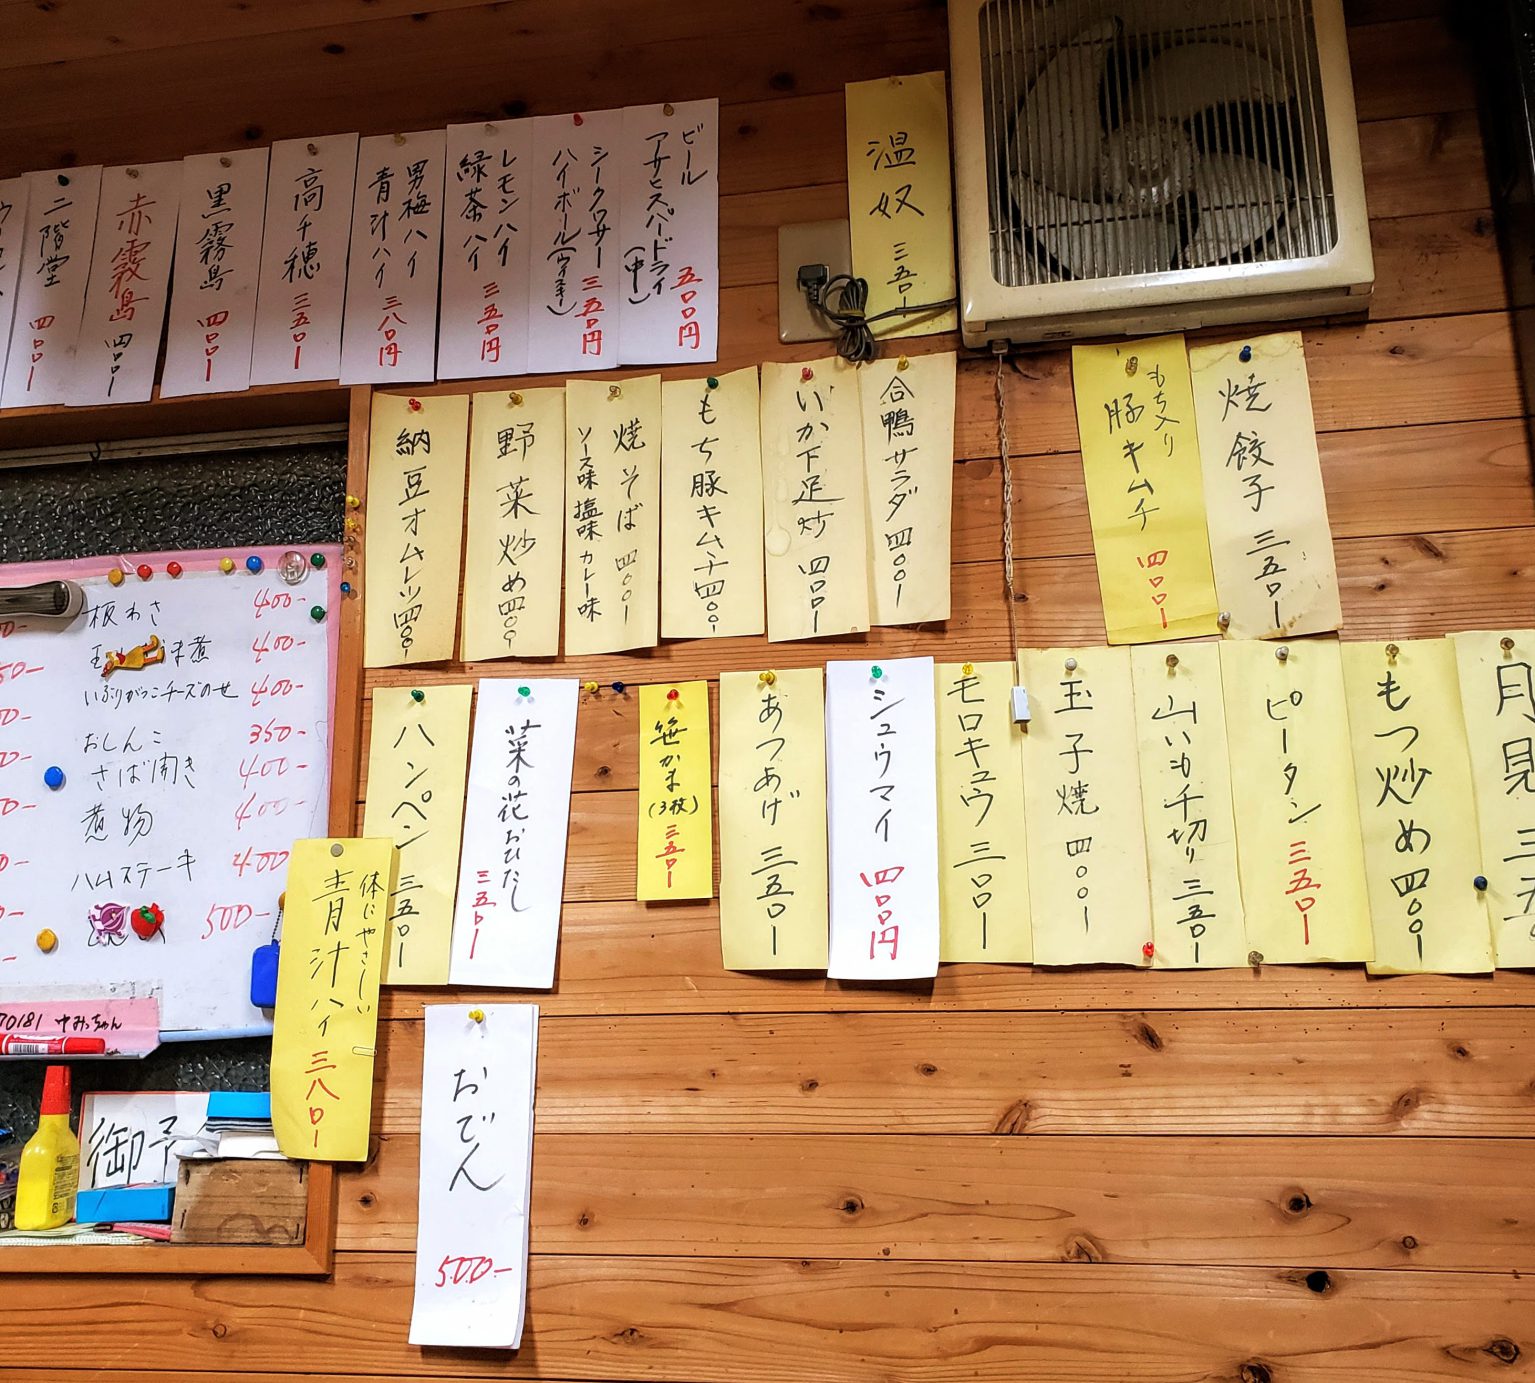 ビール
アサヒスーパードライ
(中)
五〇〇円
シークワサー
ハイボール(ウイスキー)
三五〇円
レモンハイ
緑茶ハイ
三五〇円
男梅ハイ
青汁ハイ
三八〇円
高千穂
三五〇ー
黒霧島
四〇〇ー
赤霧島
四〇〇ー
二階堂
四〇〇ー
温奴
三五〇ー
焼餃子 三五〇ー
もち入り
豚キムチ
四〇〇ー
合鴨サラダ 四〇〇ー
いか下足炒 四〇〇ー
もち豚キムチ 四〇〇ー
焼そば 四〇〇ー
ソース味 塩味 カレー味
野菜炒め 四〇〇
納豆オムレツ 四〇〇
月見
三五
もつ炒め 四〇〇ー
ピータン 三五〇ー
山いも千切り 三五〇ー
玉子焼 四〇〇ー
モロキュウ 三〇〇ー
シュウマイ 四〇〇円
あつあげ 三五〇ー
笹かま
(3枚)
三五〇ー
菜の花おひたし
三五〇ー
ハンペン 三五〇ー
体にやさしい
青汁ハイ 三八〇ー
おでん
500-
板わさ 400-
ま煮 400-
いぶりがっこチーズのせ 400-
おしんこ 350-
さば開き 400-
煮物 400-
ハムステーキ 400
500-
70181 ゆみっちゃん
御予